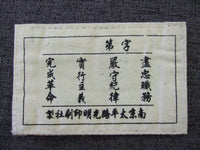 字第
盡忠職務
嚴守紀律
實行主義
完成革命
製社刷印明光路平太京南